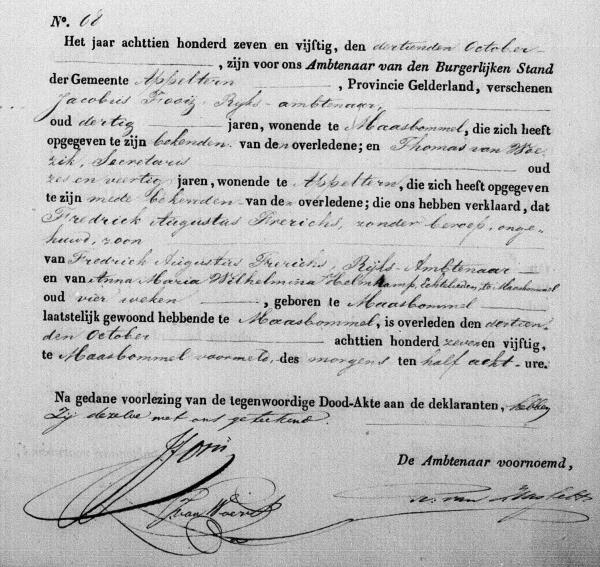 No. 68
Het jaar achttien honderd zeven en vijftig, den dertienden October
, zijn voor ons Ambtenaar van den Burgerlijken Stand
der Gemeente Appeltern , Provincie Gelderland, verschenen
Jacobus Rijks-ambtenaar,
oud dertig jaren, wonende te Maasbommel, die zich heeft
opgegeven te zijn bekenden van den overledene; en Thomas van Woe-
zik, Secretaris oud
zes en veertig jaren, wonende te Appeltern, die zich heeft opgegeven
te zijn mede bekenden van den overledene; die ons hebben verklaard, dat
Fredrick Augustus Frerichs, zonder beroep, onge-
huwd, zoon
van Fredrich Augustus Frerichs, Rijks-Ambtenaar
en van Anna Maria Wilhelmina Helmkamp, Echtelieden, te Maasbommel
oud vier weken , geboren te Maasbommel
laatstelijk gewoond hebbende te Maasbommel, is overleden den dertien-
den October achttien honderd zeven en vijftig,
te Maasbommel voormeld, des morgens ten half acht ure.
Na gedane voorlezing van de tegenwoordige Dood-Akte aan de deklaranten, hebben
zij dezelve met ons geteekend.
De Ambtenaar voornoemd,